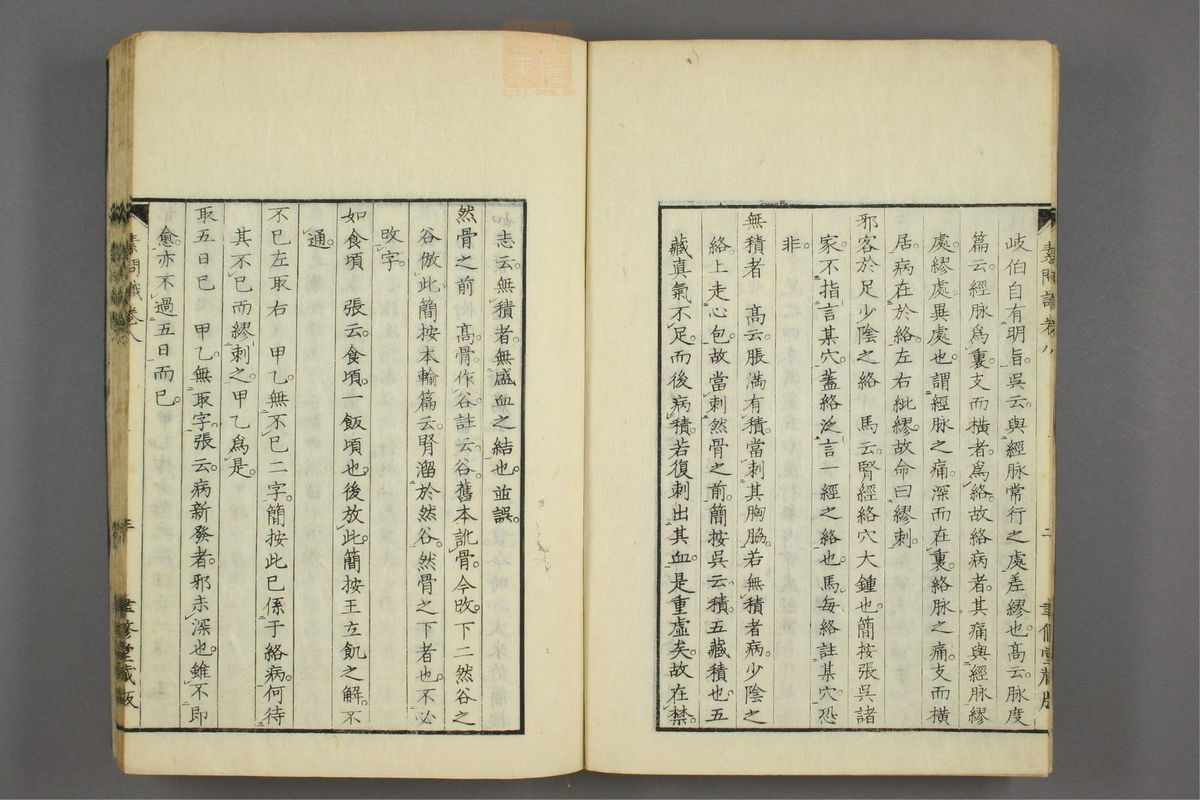 素問識卷八
二
聿修堂藏版
岐伯自有明旨。吳云與經脉常行之處差繆也。高云脉度
篇云經脉爲裏支而橫者爲絡故絡病者其痛與經脉繆
處繆處異處也謂經脉之痛深而在裏絡脉之痛支而橫
居。病在於絡左右紕繆故命曰繆刺
邪客於足少陰之絡 馬云腎經絡穴大鍾也簡按張吳諸
家不指言某穴。蓋絡泛言一經之絡也馬每絡註某穴恐
非。
無積者 高云脹滿有積當刺其胸脇若無積者病少陰之
絡上走心包。故當刺然骨之前簡按吳云積五藏積也五
藏真氣不足而後病積若復刺出其血是重虛矣。故在禁。
如志云無積者無盛血之結也。並誤。
然骨之前 高骨作谷註云谷舊本訛骨今改下二然谷之
谷倣此簡按本輸篇云腎溜於然谷。然骨之下者也不必
改字。
如食頃 張云食頃一飯頃也後放此。簡按王立飢之解。不
通。
不已左取右 甲乙無不已二字簡按此已係于絡病何待
其不已而繆刺之。甲乙爲是。
取五日已 甲乙無取字。張云病新發者邪未深也雖不即
愈亦不過五日而已。
素問識卷八
三
聿修堂藏版
zysj.com.cn